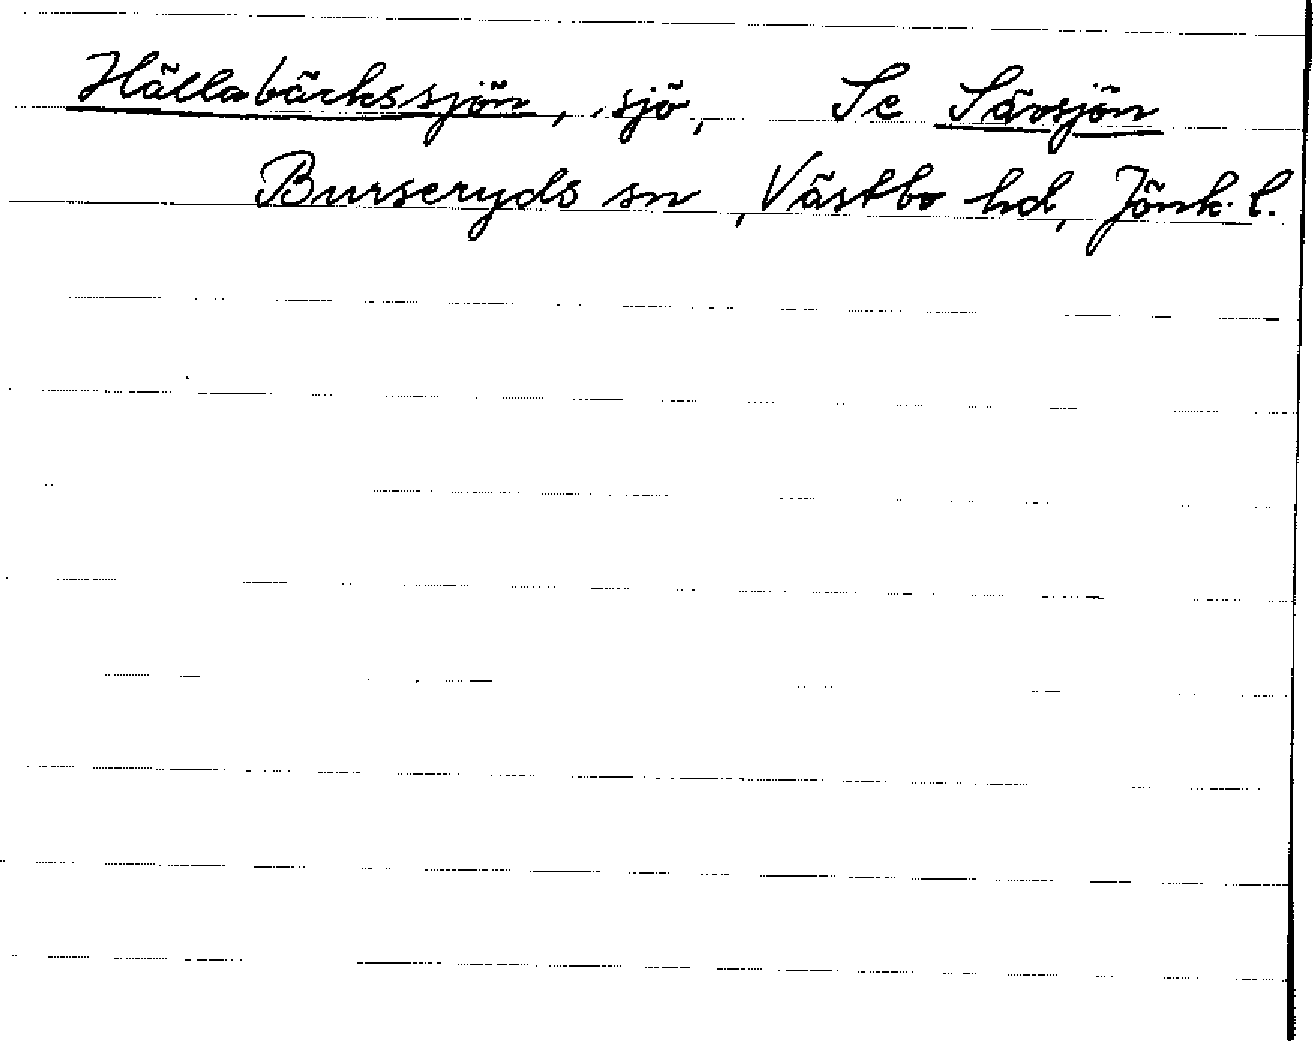 Hällabäckssjön, sjö, Se Sävsjön
Burseryds sn, Västbo hd, Jönk. l.